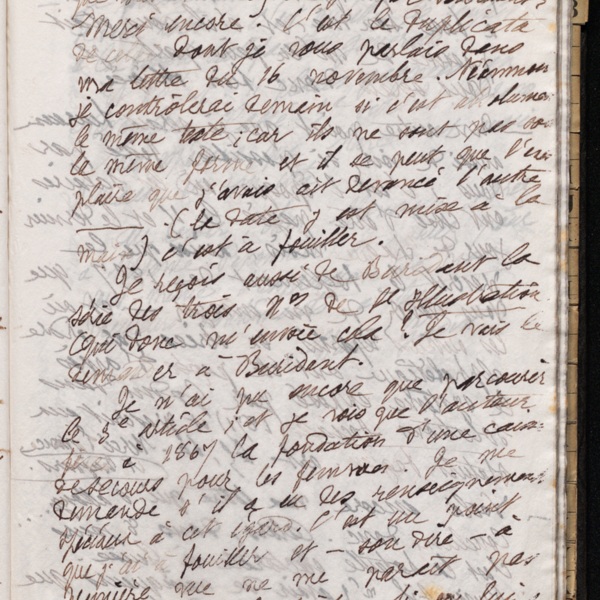 Merci encore. C'est le duplicata
dont je vous parlais dans
ma lettre du 16 novembre. Néanmoins
je contrôlerai demain si c'est absolumen
le même texte; car ils ne sont pas
la même forme et il se peut que l'exem
plaire que j'avais ait devancé l'autre
(la date y est mise à la
main) c'est à fouiller.
Je reçois aussi de Buridant la
série des trois Nos de l'Illustration
(qui donc m'envoie cela? Je vais le
demander à Buridant.
Je n'ai pu encore que parcourir
le 3e article; et je vois que l'auteur
à 1867 la fondation d'une caisse
de secours pour les femmes. Je me
demande s'il a eu des renseignements
spéciaux à cet égard. C'est un point
que j'ai à fouiller et - soit dit - à
première vue ne me paraît pas